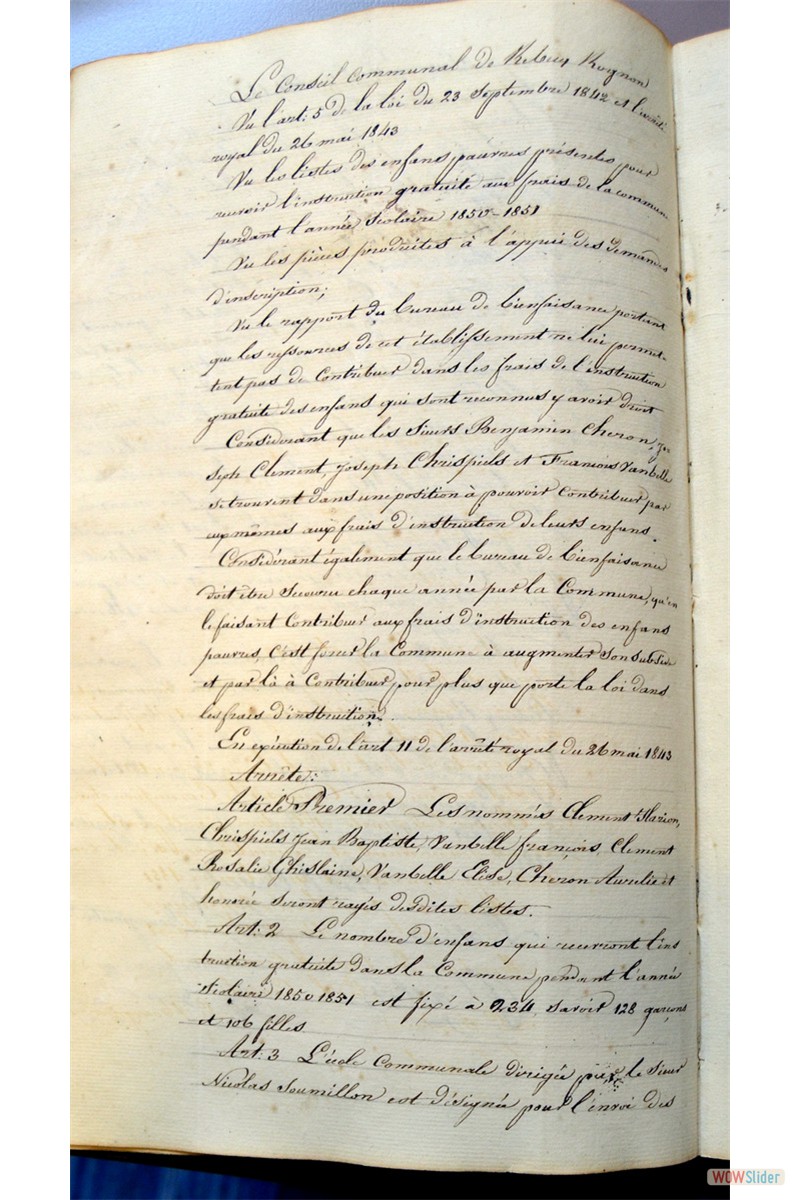 Le Conseil Communal de Rebecq Rognon
Vu l'art: 5 de la loi du 23 Septembre 1842 et l'arrêté
royal du 26 mai 1843
Vu les listes des enfans pauvres présentés pour
recevoir l'instruction gratuite aux frais de la commune
pendant l'année Scolaire 1850-1851
Vu les pièces produites à l'appui des demandes
d'inscription;
Vu le rapport du bureau de bienfaisance portant
que les ressources de cet établissement ne lui permet-
tent pas de Contribuer dans les frais de l'instruction
gratuite des enfans qui sont reconnus y avoir droit
Considerant que les Sieurs Benjamin Cheron, Jo-
seph Clement, Joseph Chrispiels et François Vanbelle
se trouvent dans une position à pouvoir Contribuer par
eux mêmes aux frais d'instruction de leurs enfans.
Considérant également que le bureau de bienfaisance
doit être Secouru chaque année par la Commune, qu'en
le faisant Contribuer aux frais d'instruction des enfans
pauvres, c'est forcer la Commune à augmenter son subside
et par là à Contribuer pour plus que porte la loi dans
les frais d'instruction.
En exécution de l'art 11 de l'arrêté royal du 26 mai 1843
Arrête:
Article Premier Les nommés Clement Hlarion,
Chrispiels Jean Baptiste, Vanbelle françois, Clement
Rosalie Ghislaine, Vanbelle Elise, Cheron Aurelie et
honorée seront rayés desdites listes.
Art: 2 Le nombre d'enfans qui recevront l'ins
truction gratuite dans la Commune pendant l'année
Scolaire 1850 1851 est fixé à 234, savoir 128 garçons
et 106 filles
Art: 3 L'école Communale dirigée par le Sieur
Nicolas Soumillon est désignée pour l'envoi des
WOWSlider